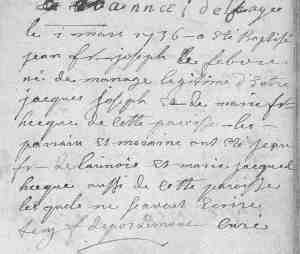 le 1 mars 1736 a été Baptisé
jean fr. joseph le febvre
né de mariage legitime d'entre
jacques joseph et de marie fr
hecque de cette paroisse les
parain et maraine ont été jean
fr. de lainois et marie jacques
hecque aussi de cette paroisse
lesquels ne scavent écrire
curé